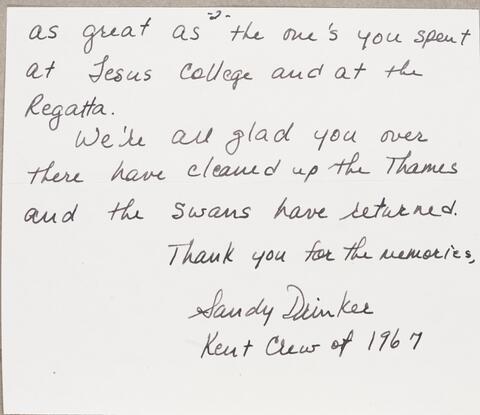 -2-
as great as the one's you spent
at Jesus College and at the
Regatta.
We're all glad you over
there have cleaned up the Thames
and the swans have returned.
Thank you for the memories,
Sandy Drinker
Kent Crew of 1967